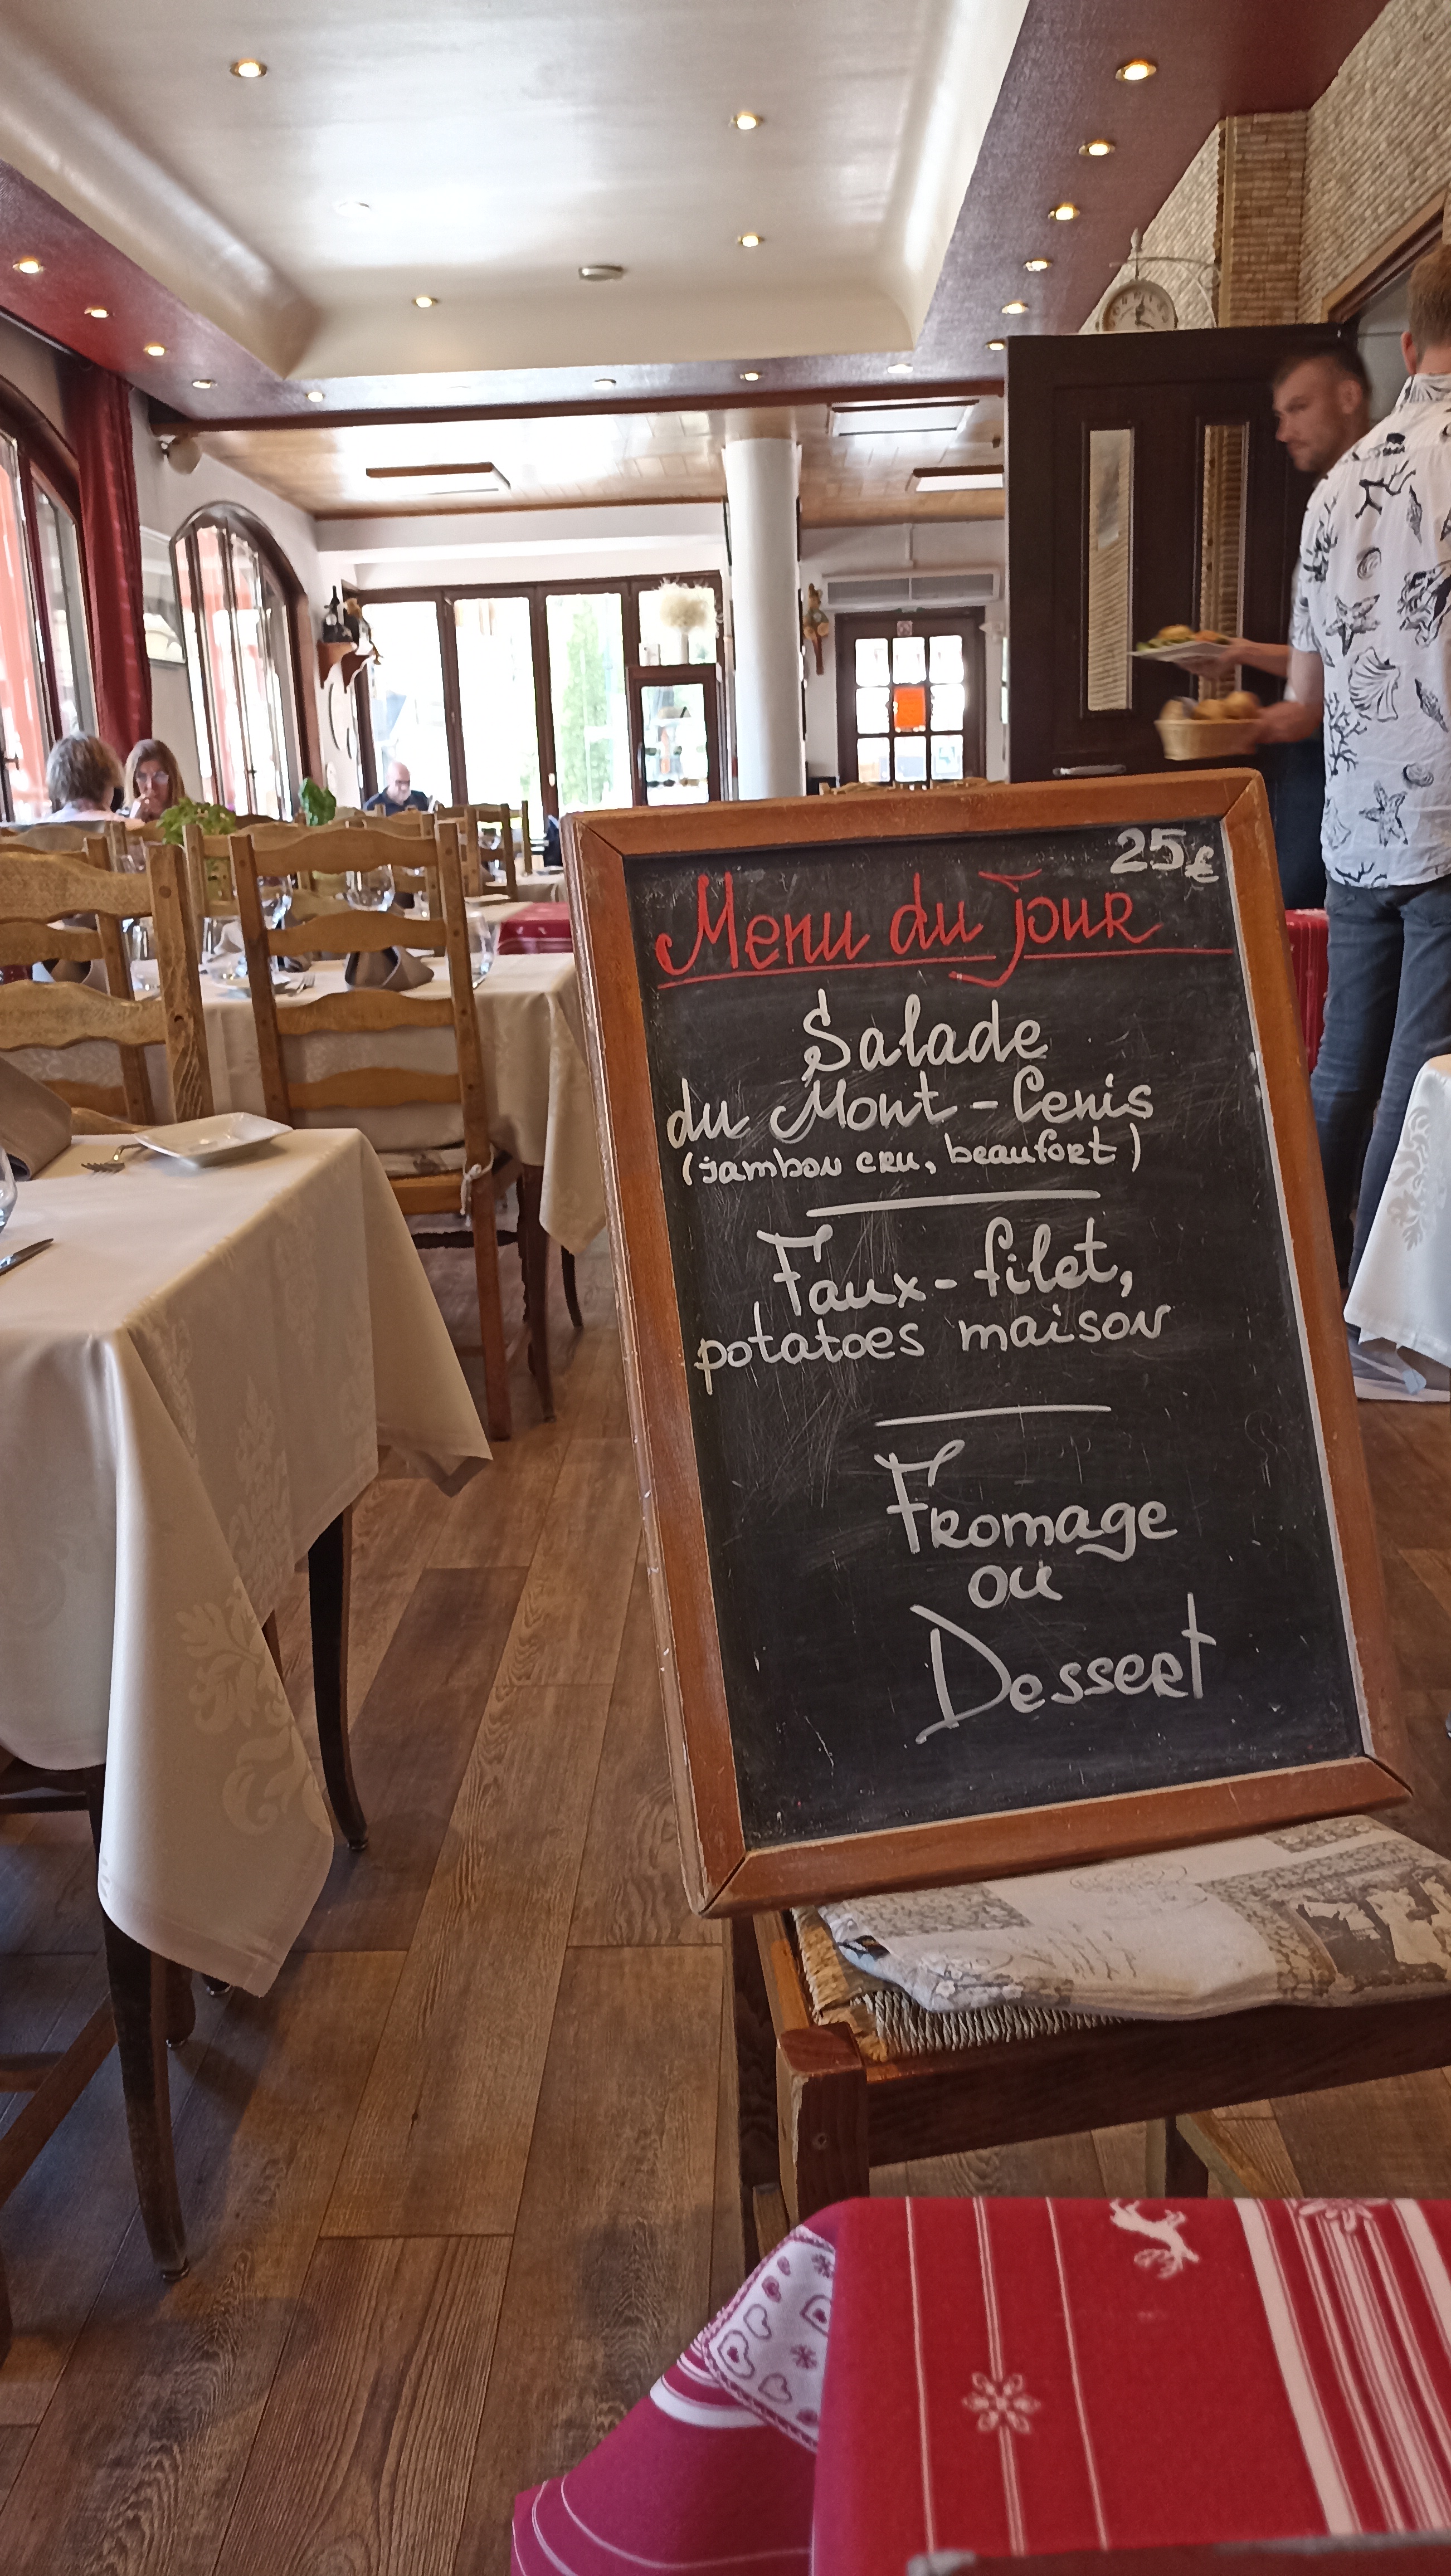 25€
Menu du jour
Salade
du Mont-Cenis
(jambon cru, beaufort)
Faux-filet,
potatoes maison
Fromage
ou
Dessert